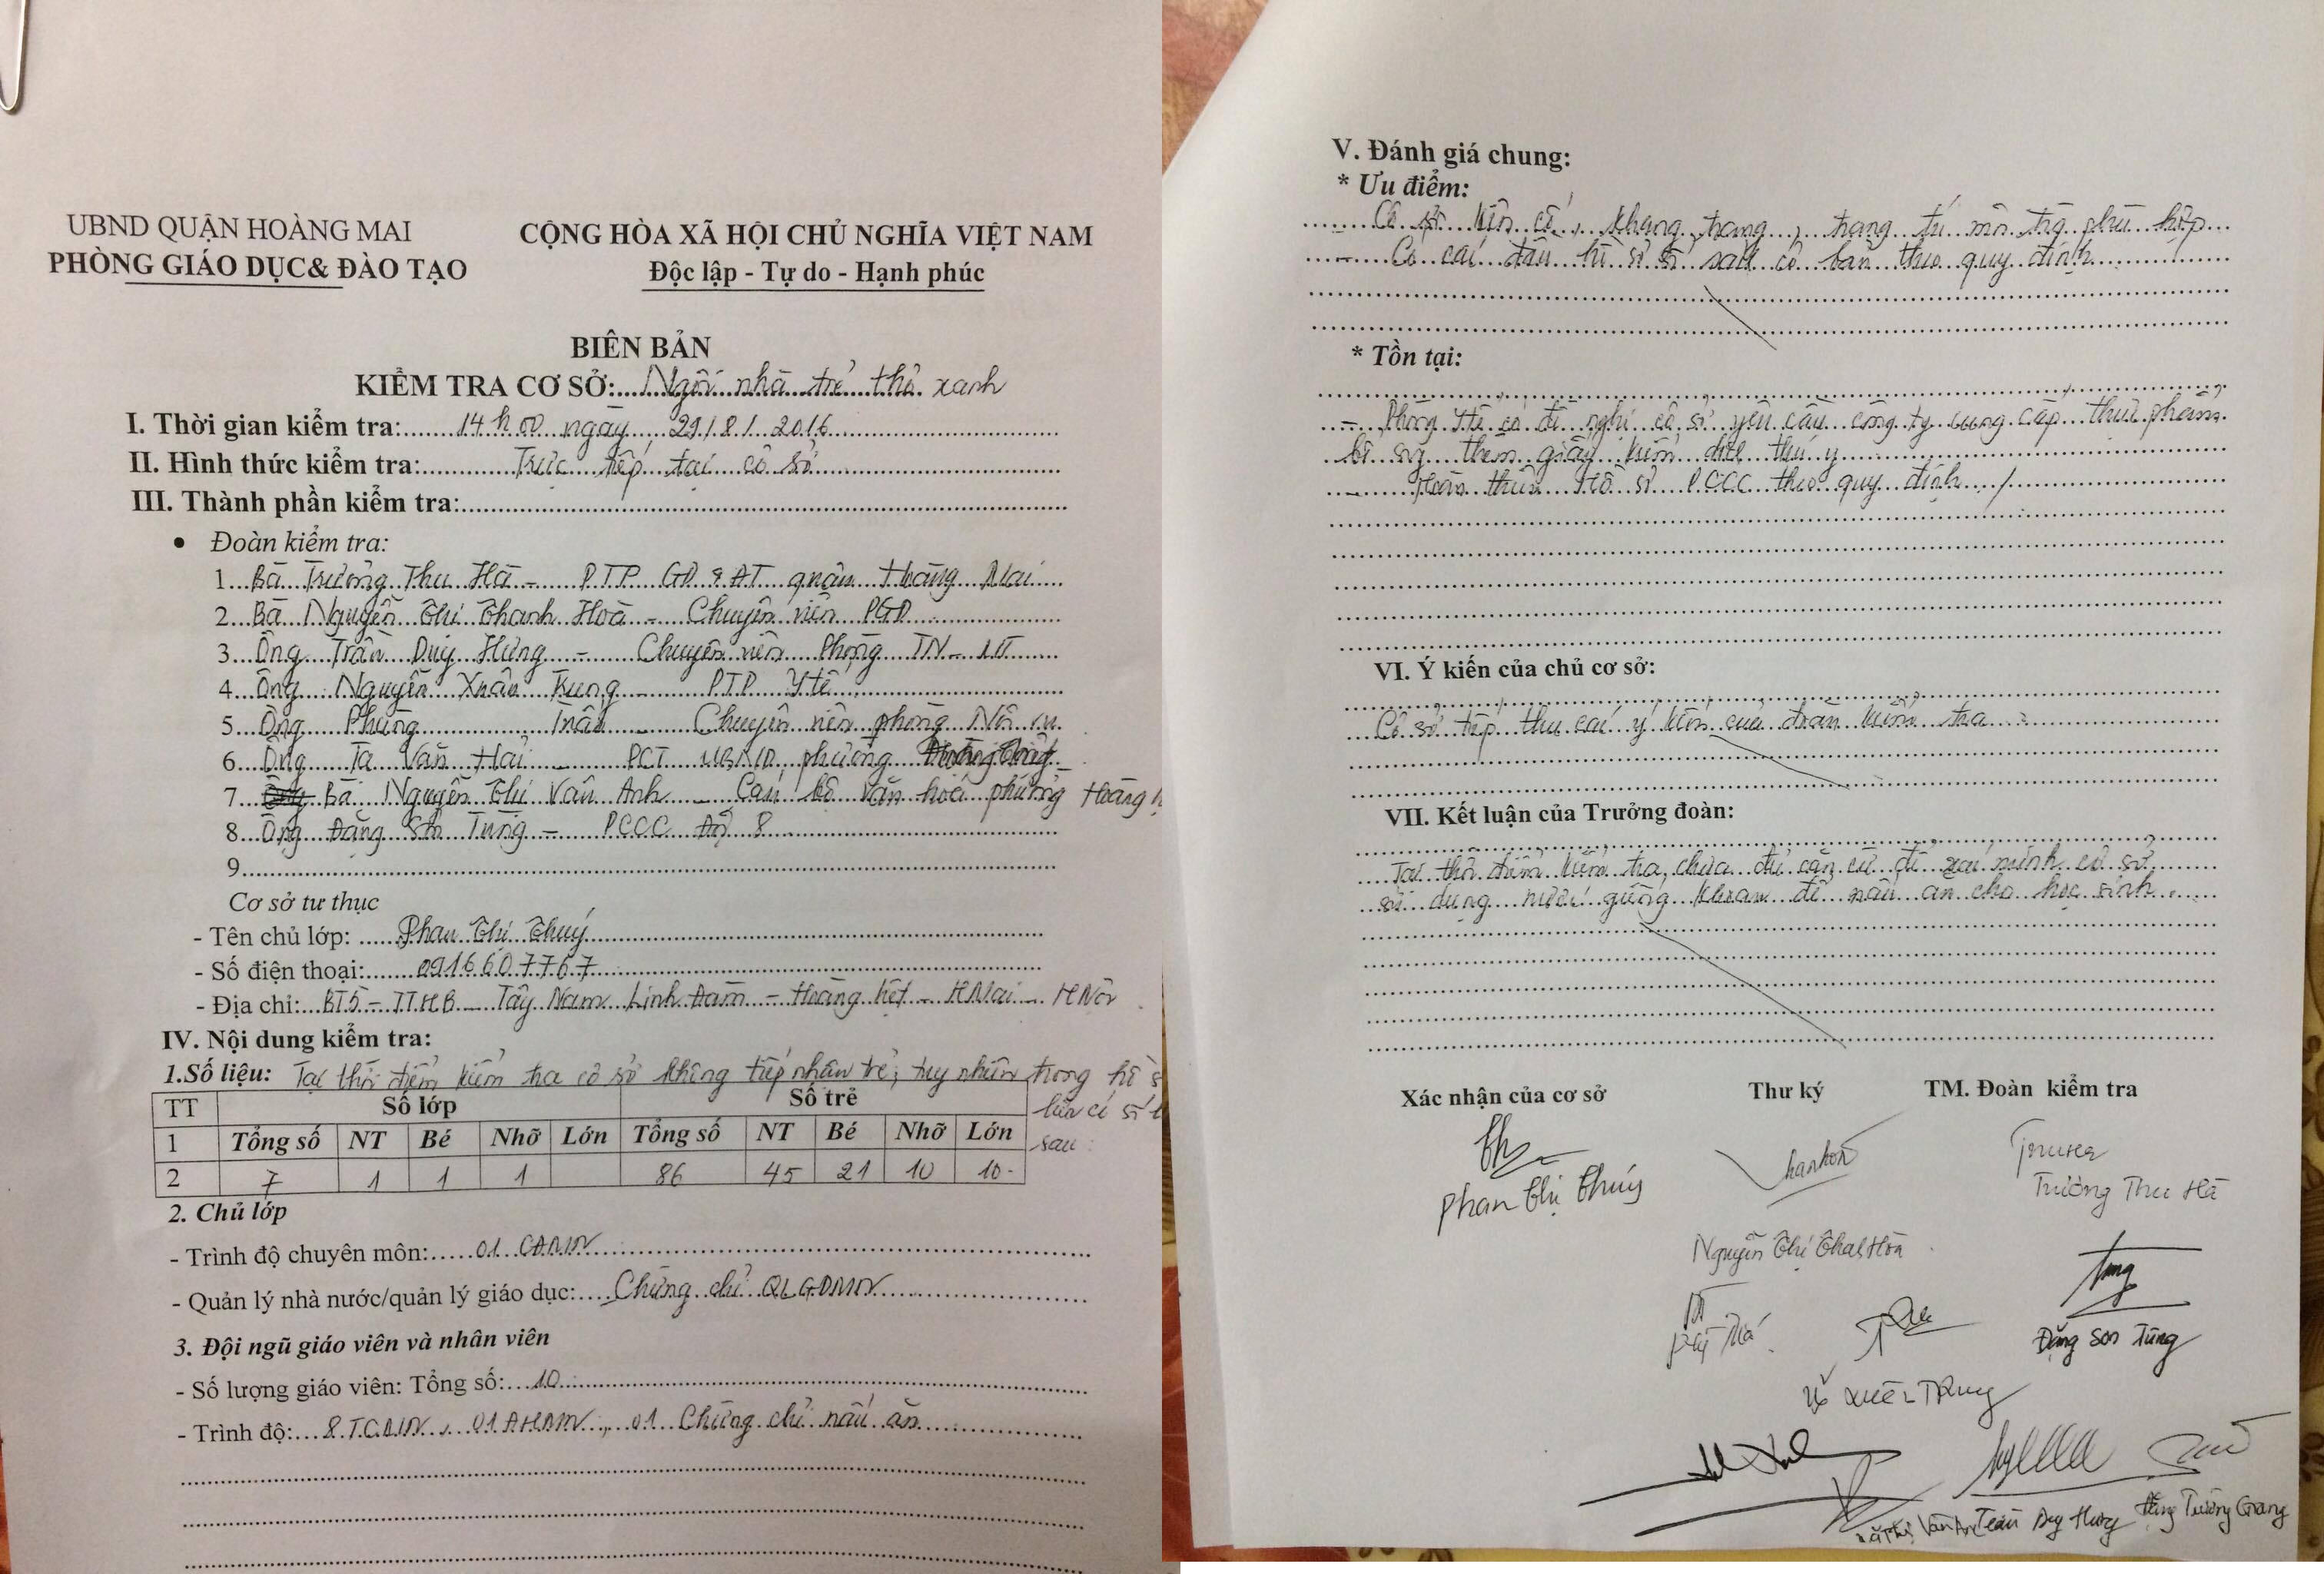 UBND QUẬN HOÀNG MAI
PHÒNG GIÁO DỤC& ĐÀO TẠO
CỘNG HÒA XÃ HỘI CHỦ NGHĨA VIỆT NAM
Độc lập - Tự do - Hạnh phúc
BIÊN BẢN
KIỂM TRA CƠ SỞ: Ngôi nhà trẻ thỏ xanh
I. Thời gian kiểm tra: 14h00 ngày 29/8/2016
II. Hình thức kiểm tra: Trực tiếp tại cơ sở
III. Thành phần kiểm tra:
• Đoàn kiểm tra:
1. Bà Trương Thu Hà - PTP GD & ĐT quận Hoàng Mai
2. Bà Nguyễn Thị Thanh Hoà - Chuyên viên PGD
3. Ông Trần Duy Hưng - Chuyên viên Phòng
4. Ông Nguyễn Xuân Trung - PTP Y tế
5. Ông Phùng - Chuyên viên phòng Nội vụ
6. Ông Tạ Văn Hải - PCT UBND phường
7. Bà Nguyễn Thị Vân Anh - Cán bộ văn hoá phường Hoàng
8. Ông Đặng Sơn Tùng - PCCC Đội 8
9.
Cơ sở tư thục
- Tên chủ lớp: Phan Thị Thuý
- Số điện thoại: 0916607767
- Địa chỉ: BT5 - Tây Nam Linh Đàm - Hoàng Liệt - HMai - HNội
IV. Nội dung kiểm tra:
1.Số liệu: Tại thời điểm kiểm tra cơ sở không tiếp nhận trẻ, tuy nhiên trong hồ s
sau:
TT Số lớp Số trẻ
1 Tổng số NT Bé Nhỡ Lớn Tổng số NT Bé Nhỡ Lớn
2 7 1 1 1 86 45 21 10 10
2. Chủ lớp
- Trình độ chuyên môn: 01 CĐMN
- Quản lý nhà nước/quản lý giáo dục: Chứng chỉ QLGDMN
3. Đội ngũ giáo viên và nhân viên
- Số lượng giáo viên: Tổng số: 10
- Trình độ: 8 TCMN, 01 ĐHMN, 01 Chứng chỉ nấu ăn
V. Đánh giá chung:
* Ưu điểm:
- Cơ sở kiên cố, khang trang, trang trí môi trg phù hợp
- Có các đầu hồ sơ sổ sách cơ bản theo quy định
* Tồn tại:
- Phòng Y tế có đề nghị cơ sở yêu cầu công ty cung cấp thực phẩm
bổ sung thêm giấy kiểm dịch thú y
- Hoàn thiện Hồ sơ PCCC theo quy định ./
VI. Ý kiến của chủ cơ sở:
Cơ sở tiếp thu các ý kiến của đoàn kiểm tra
VII. Kết luận của Trưởng đoàn:
Tại thời điểm kiểm tra, chưa đủ căn cứ để xác minh cơ sở
sử dụng nước giếng khoan để nấu ăn cho học sinh.
Xác nhận của cơ sở
Thư ký
TM. Đoàn kiểm tra
Phan Thị Thuý
Trương Thu Hà
Đặng Sơn Tùng
Xuân Trung
Trần Duy Hưng
Tường Giang